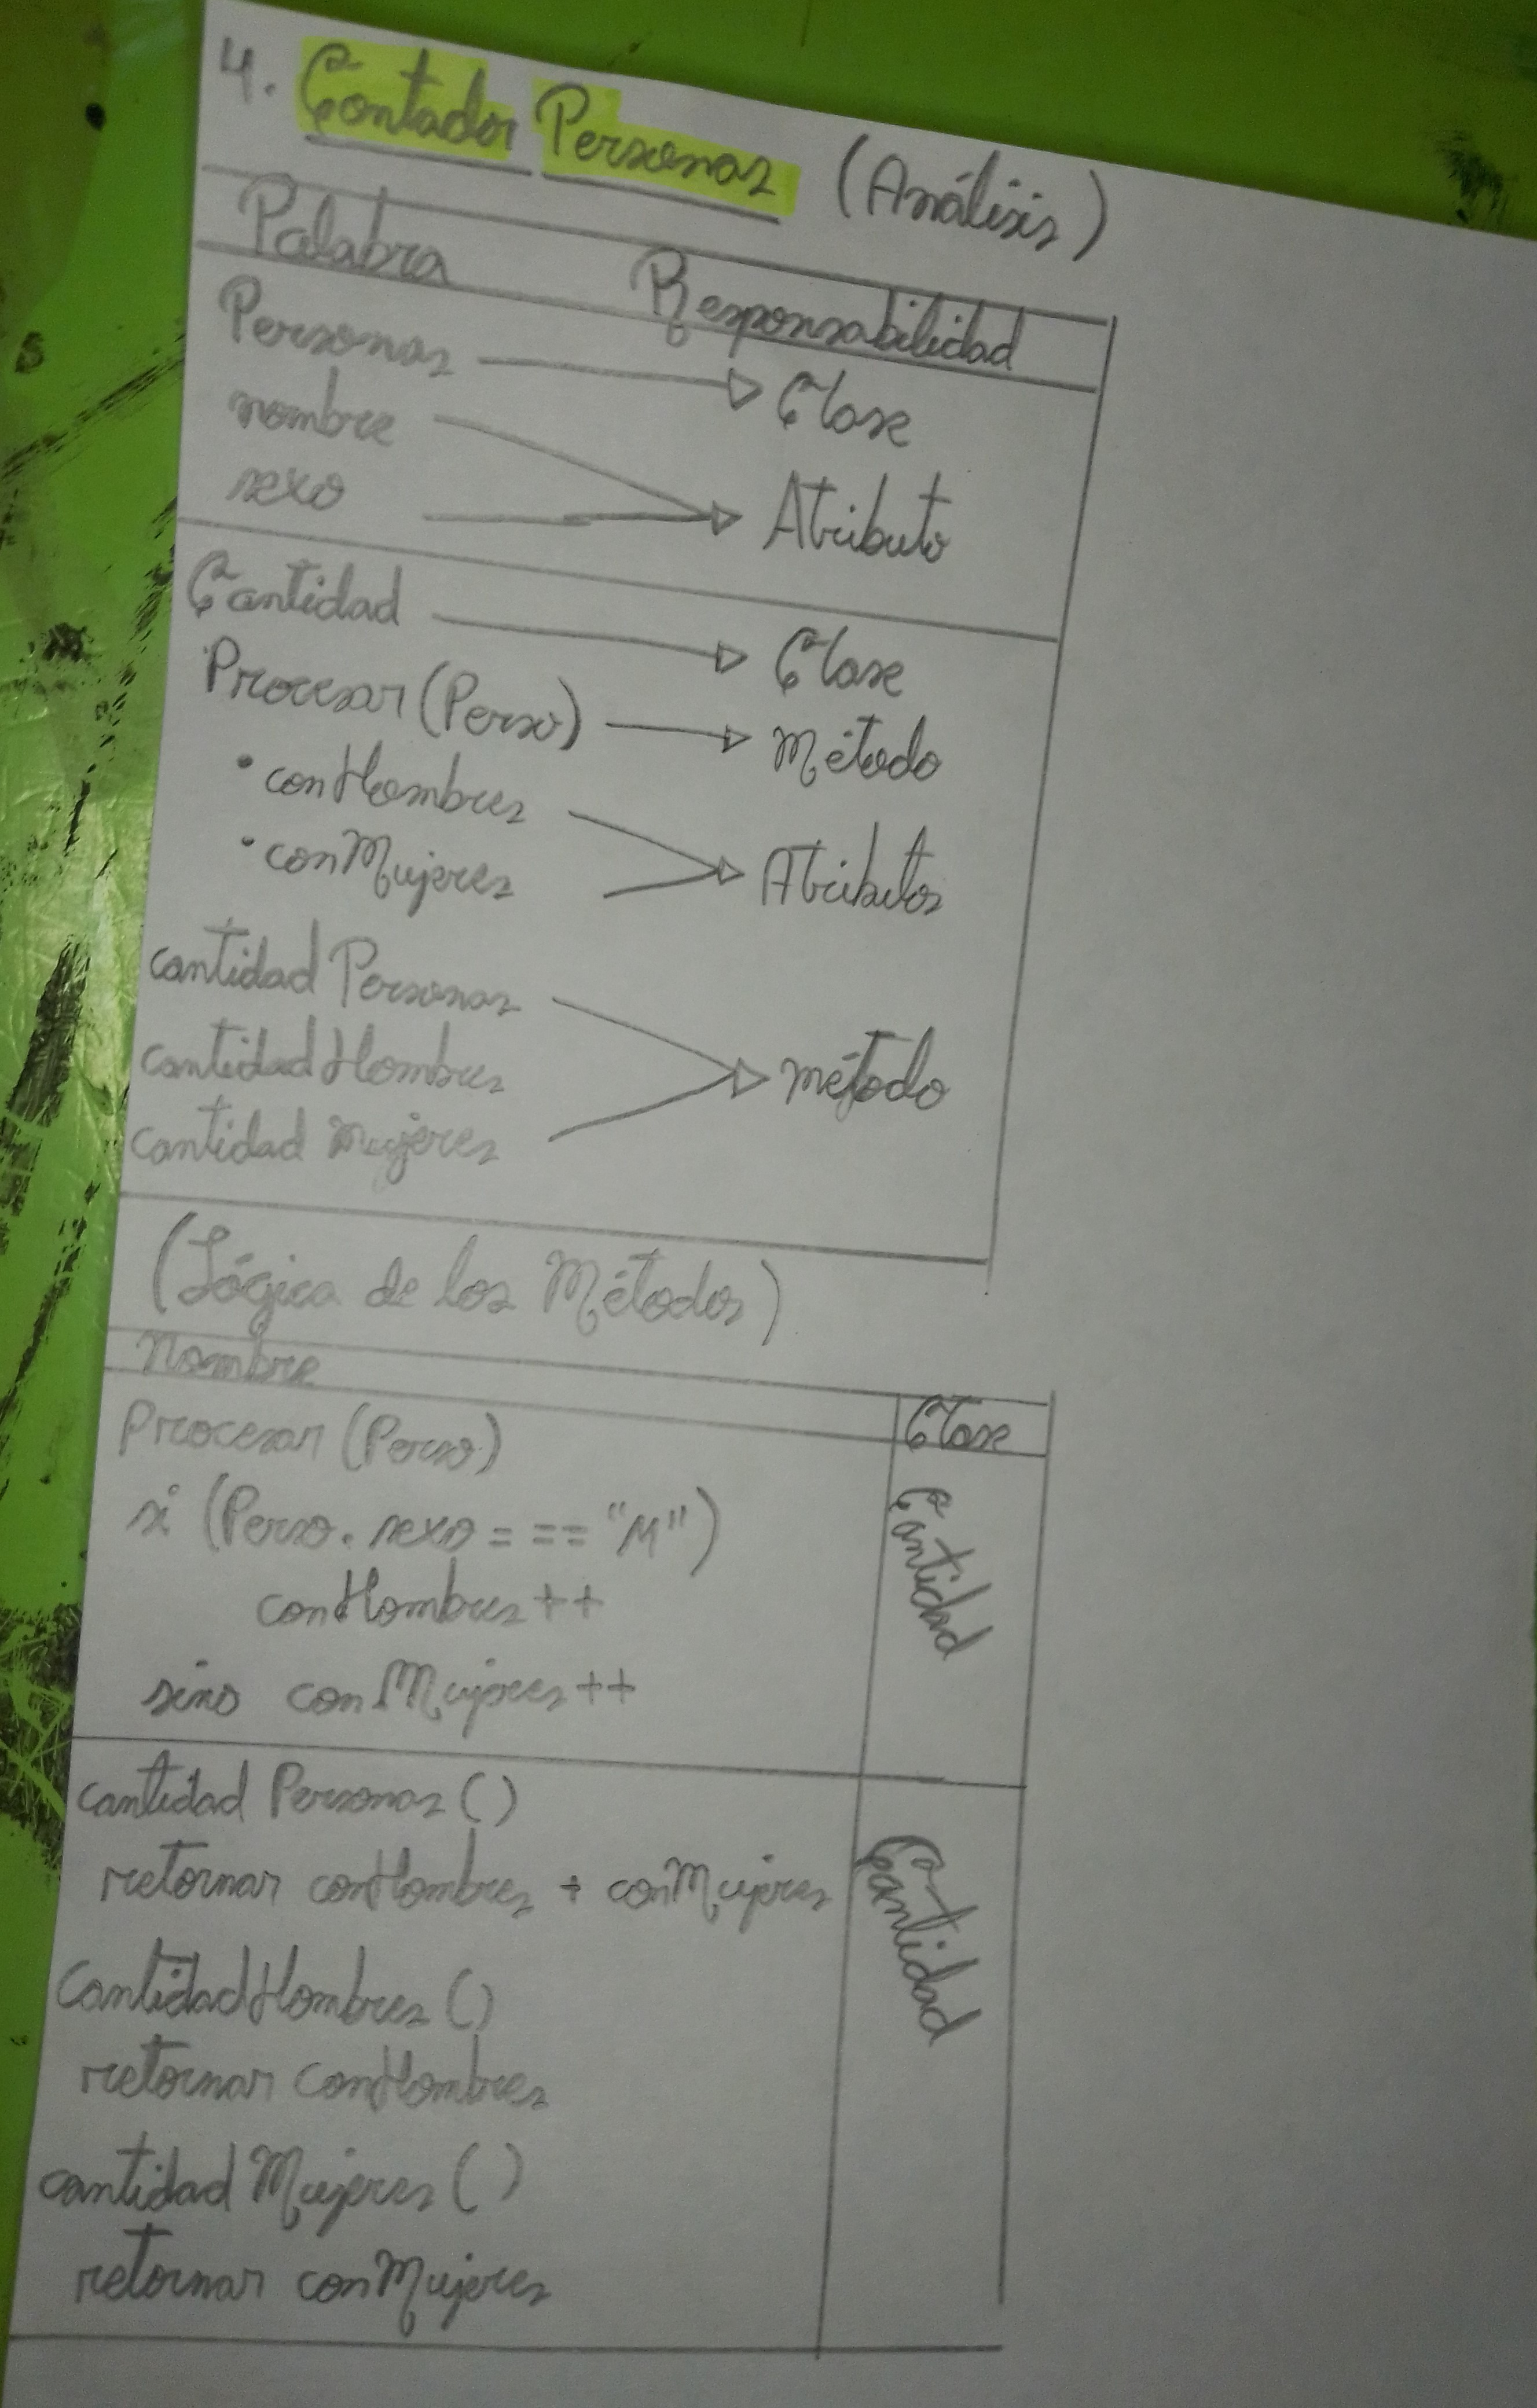 4. Contador Personas (Análisis)
Palabra Responsabilidad
Personas Clase
nombre
sexo Atributo
Cantidad Clase
Procesar (Perso) Método
• conHombres
• conMujeres Atributos
cantidad Personas
cantidadHombres método
cantidad Mujeres
(Lógica de los Métodos)
Nombre Clase
Procesar (Perso) Cantidad
si (Perso. sexo = == "M")
conHombres ++
sino conMujeres ++
cantidad Personas () Cantidad
retornar conHombres + conMujeres
CantidadHombres ()
retornar conHombres
cantidad Mujeres ()
retornar conMujeres